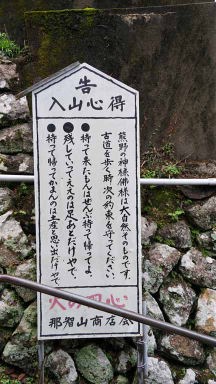 告
入山心得
熊野の神様佛様は大自然そのものです。
古道を歩く時次の約束を守って下さい。
●持って来たもんはぜんぶ持って帰ってよ。
●残していってええのは足あとだけやで。
●持って帰ってかまんのは土産と思い出だけやで。
火の用心
那智山商店会